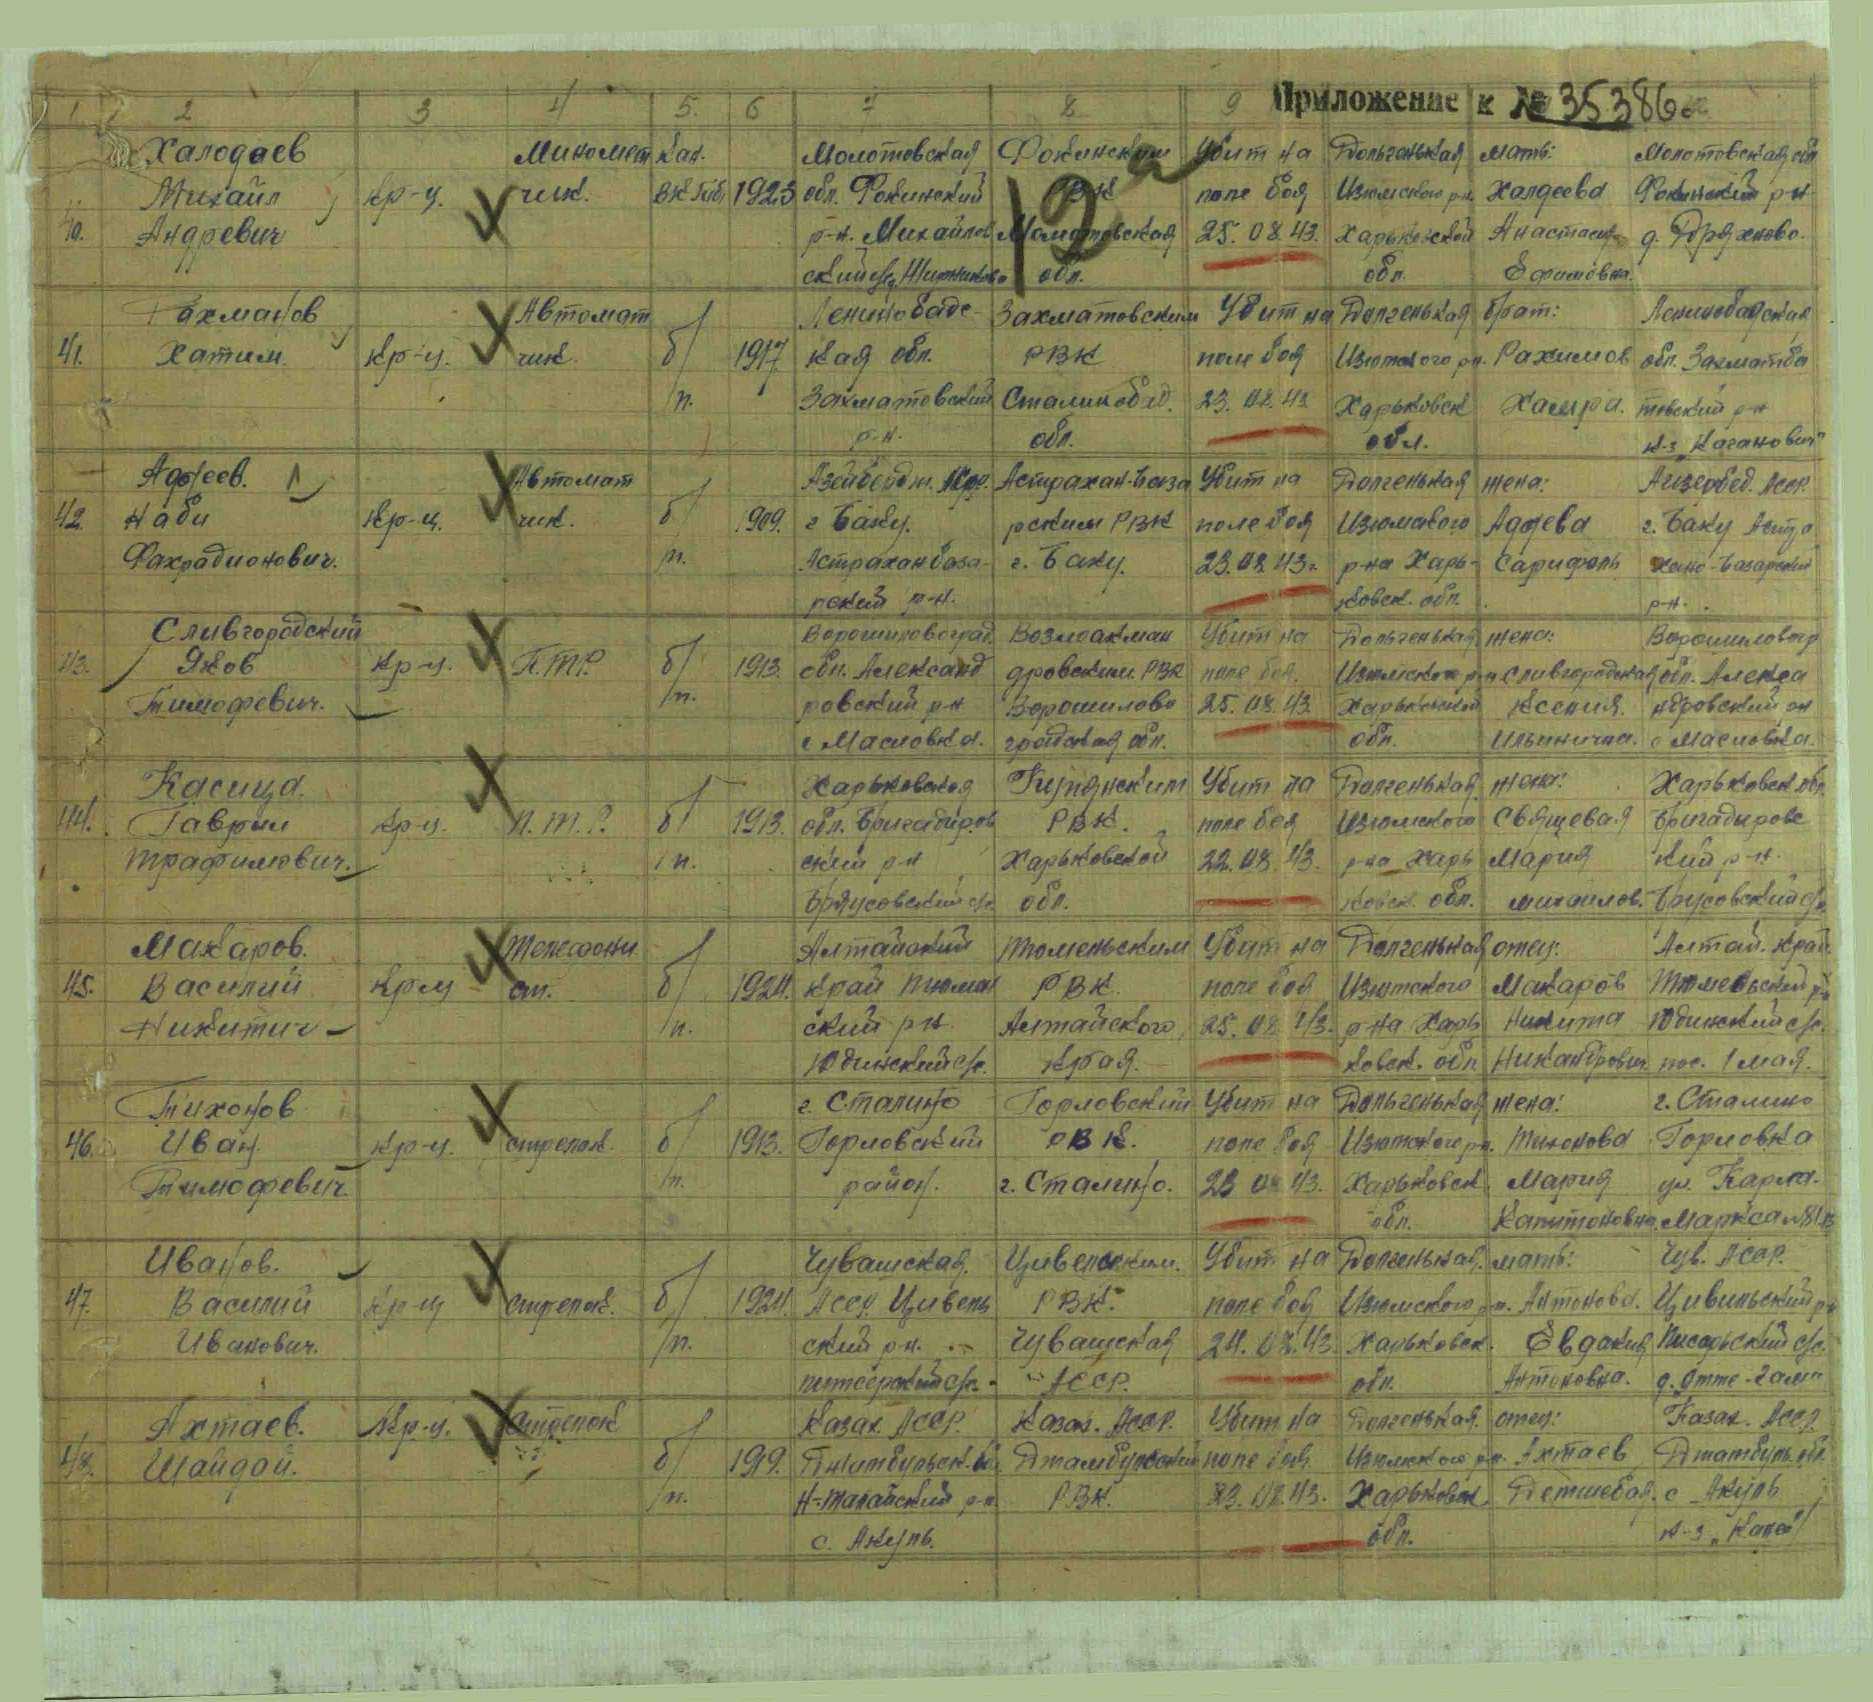 Приложение к № 35386с
1 2 3 4 5. 6 7 8 9
12
Халодаев Миномет кан. Молотовская Фокинским Убит на Дольгенькая мать: Молотовская обл
Михаил кр-ц. чик. ВКП(б) 1923 обл. Фокинский РВК поле боя Изюмского р-н. Халдеева Фокинский р-н
40. Андревич р-н. Михайлов Молотовская 25.08.43. Харьковской Анастасия д.
ский с/с, обл. обл. Ефимовна.
Рахманов Автомат Ленинобадс- Захматовским Убит на Долгенькая брат: Ленинобадская
41. Хатим. кр-ц. чик. б/ 1917 кая обл. РВК поле боя Изюмского р-н. Рахимов обл. Захматба
п. Захматовский Сталинобад. 23.08.43 Харьковск Хамра. товский р-н
р-н. обл. обл. к-з „Каганович"
Адфеев. Автомат Азейбердж. Асср. Астрахан-База Убит на Долгенькая жена: Аизербед. Асср.
42. Наби кр-ц. чик. б/ 1909. г Баку. рским РВК поле боя Изюмского Адфева г. Баку Астра
Фахрадионович. п. Астраханбаза- г. Баку. 23.08.43г. р-на Харь- Сарифоль хано-Базарский
рский р-н. ковск. обл. р-н.
Сливгородский Ворошиловоград. Убит на Дольгенькая жена: Ворошиловогр
43. Яков кр-ц. П.Т.Р. б/ 1913. обл. Александ дровским РВК поле боя. Изюмского р-н Сливгородская обл. Алекса
Тимофевич. п. ровский р-н Ворошилово 25.08.43 Харьковской Ксения. ндровский рн
с Масловка. градская обл. обл. Ильинична. с Масловка.
Касица. Харьковская Купянским Убит на Долгенькая жена: Харьковск обл.
44. Гаврил кр-ц. П.Т.Р. б/ 1913. обл. Бригадиров РВК. поле боя Изюмского Свящевая Бригадировс
Трафимович. п. ский р-н Харьковской 22.08.43. р-на Харь Мария кий р-н.
Брусовский с/с обл. ковск. обл. михайлов. Брусовский с/с.
Макаров. Телефони Алтайский Тюменьским Убит на Долгенькая отец: Алтай. край
45. Василий кр-ц ст. б/ 1924. край Тюмен РВК. поле боя Изюмского Макаров Тюменьский р-н
Никитич п. ский р-н Алтайского 25.08.43. р-на Харь Никита Юдинский с/с.
Юдинский с/с. края. ковск. обл Никандрович пос. 1 мая.
Тихонов г. Сталино Горловский Убит на Дольгенькая жена: г. Сталино
46. Иван кр-ц. стрелок. б/ 1913. Горловский РВК. поле боя Изюмского р-н. Тихонова Горловка
Тимофевич. п. район. г. Сталино. 23 08 43. Харьковск Мария ул. Карла.
обл. Капитоновна. Маркса
Иванов. Чувашская. Цивелским. Убит на Долгенькая. мать: Чув. АССР.
47. Василий кр-ц стрелок. б/ 1924. АССР Цивель РВК. поле боя Изюмского р-н. Антонова. Цивильский р-н
Иванович. п. ский р-н. Чувашская 24.08.43. Харьковск. Евдакия с/с.
с/с. АССР. обл. Антоновна. д.
Ахтаев. Кр-ц. Стрелок Казах. АССР. Казах. АССР. Убит на Долгенькая. отец: Казах. АССР.
48. Шайдай. б/ 1919. Джамбульск. Джамбульский поле боя Изюмского р-н. Ахтаев Джамбуль. обл.
п. р-н. РВК. 23.08.43. Харьковск. с Акуль
с. Акуль. обл. к-з